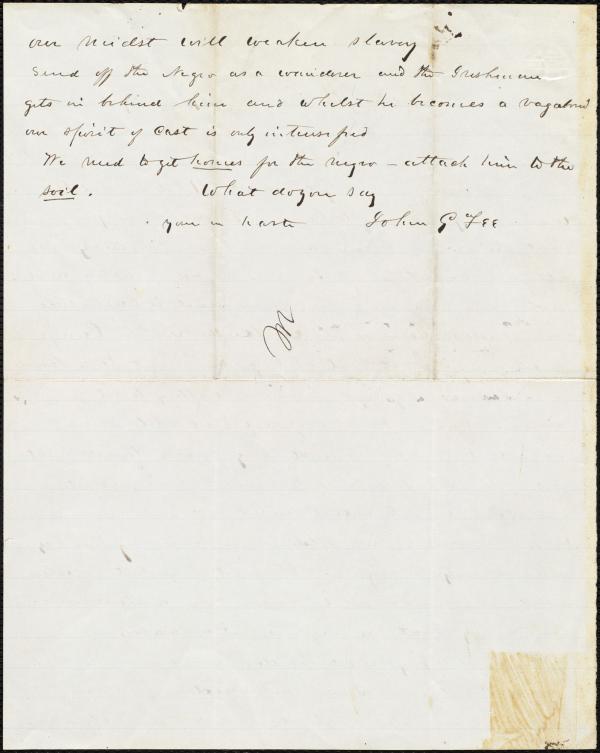 our midst will weaken slavery
Send off the Negro as a wanderer and the Irishman
gets in behind him and whilst he becomes a vagabond
our spirit of Cast is only intensified
We need to get homes for the negro – attach him to the
soil. What do you say
your in haste John G Fee